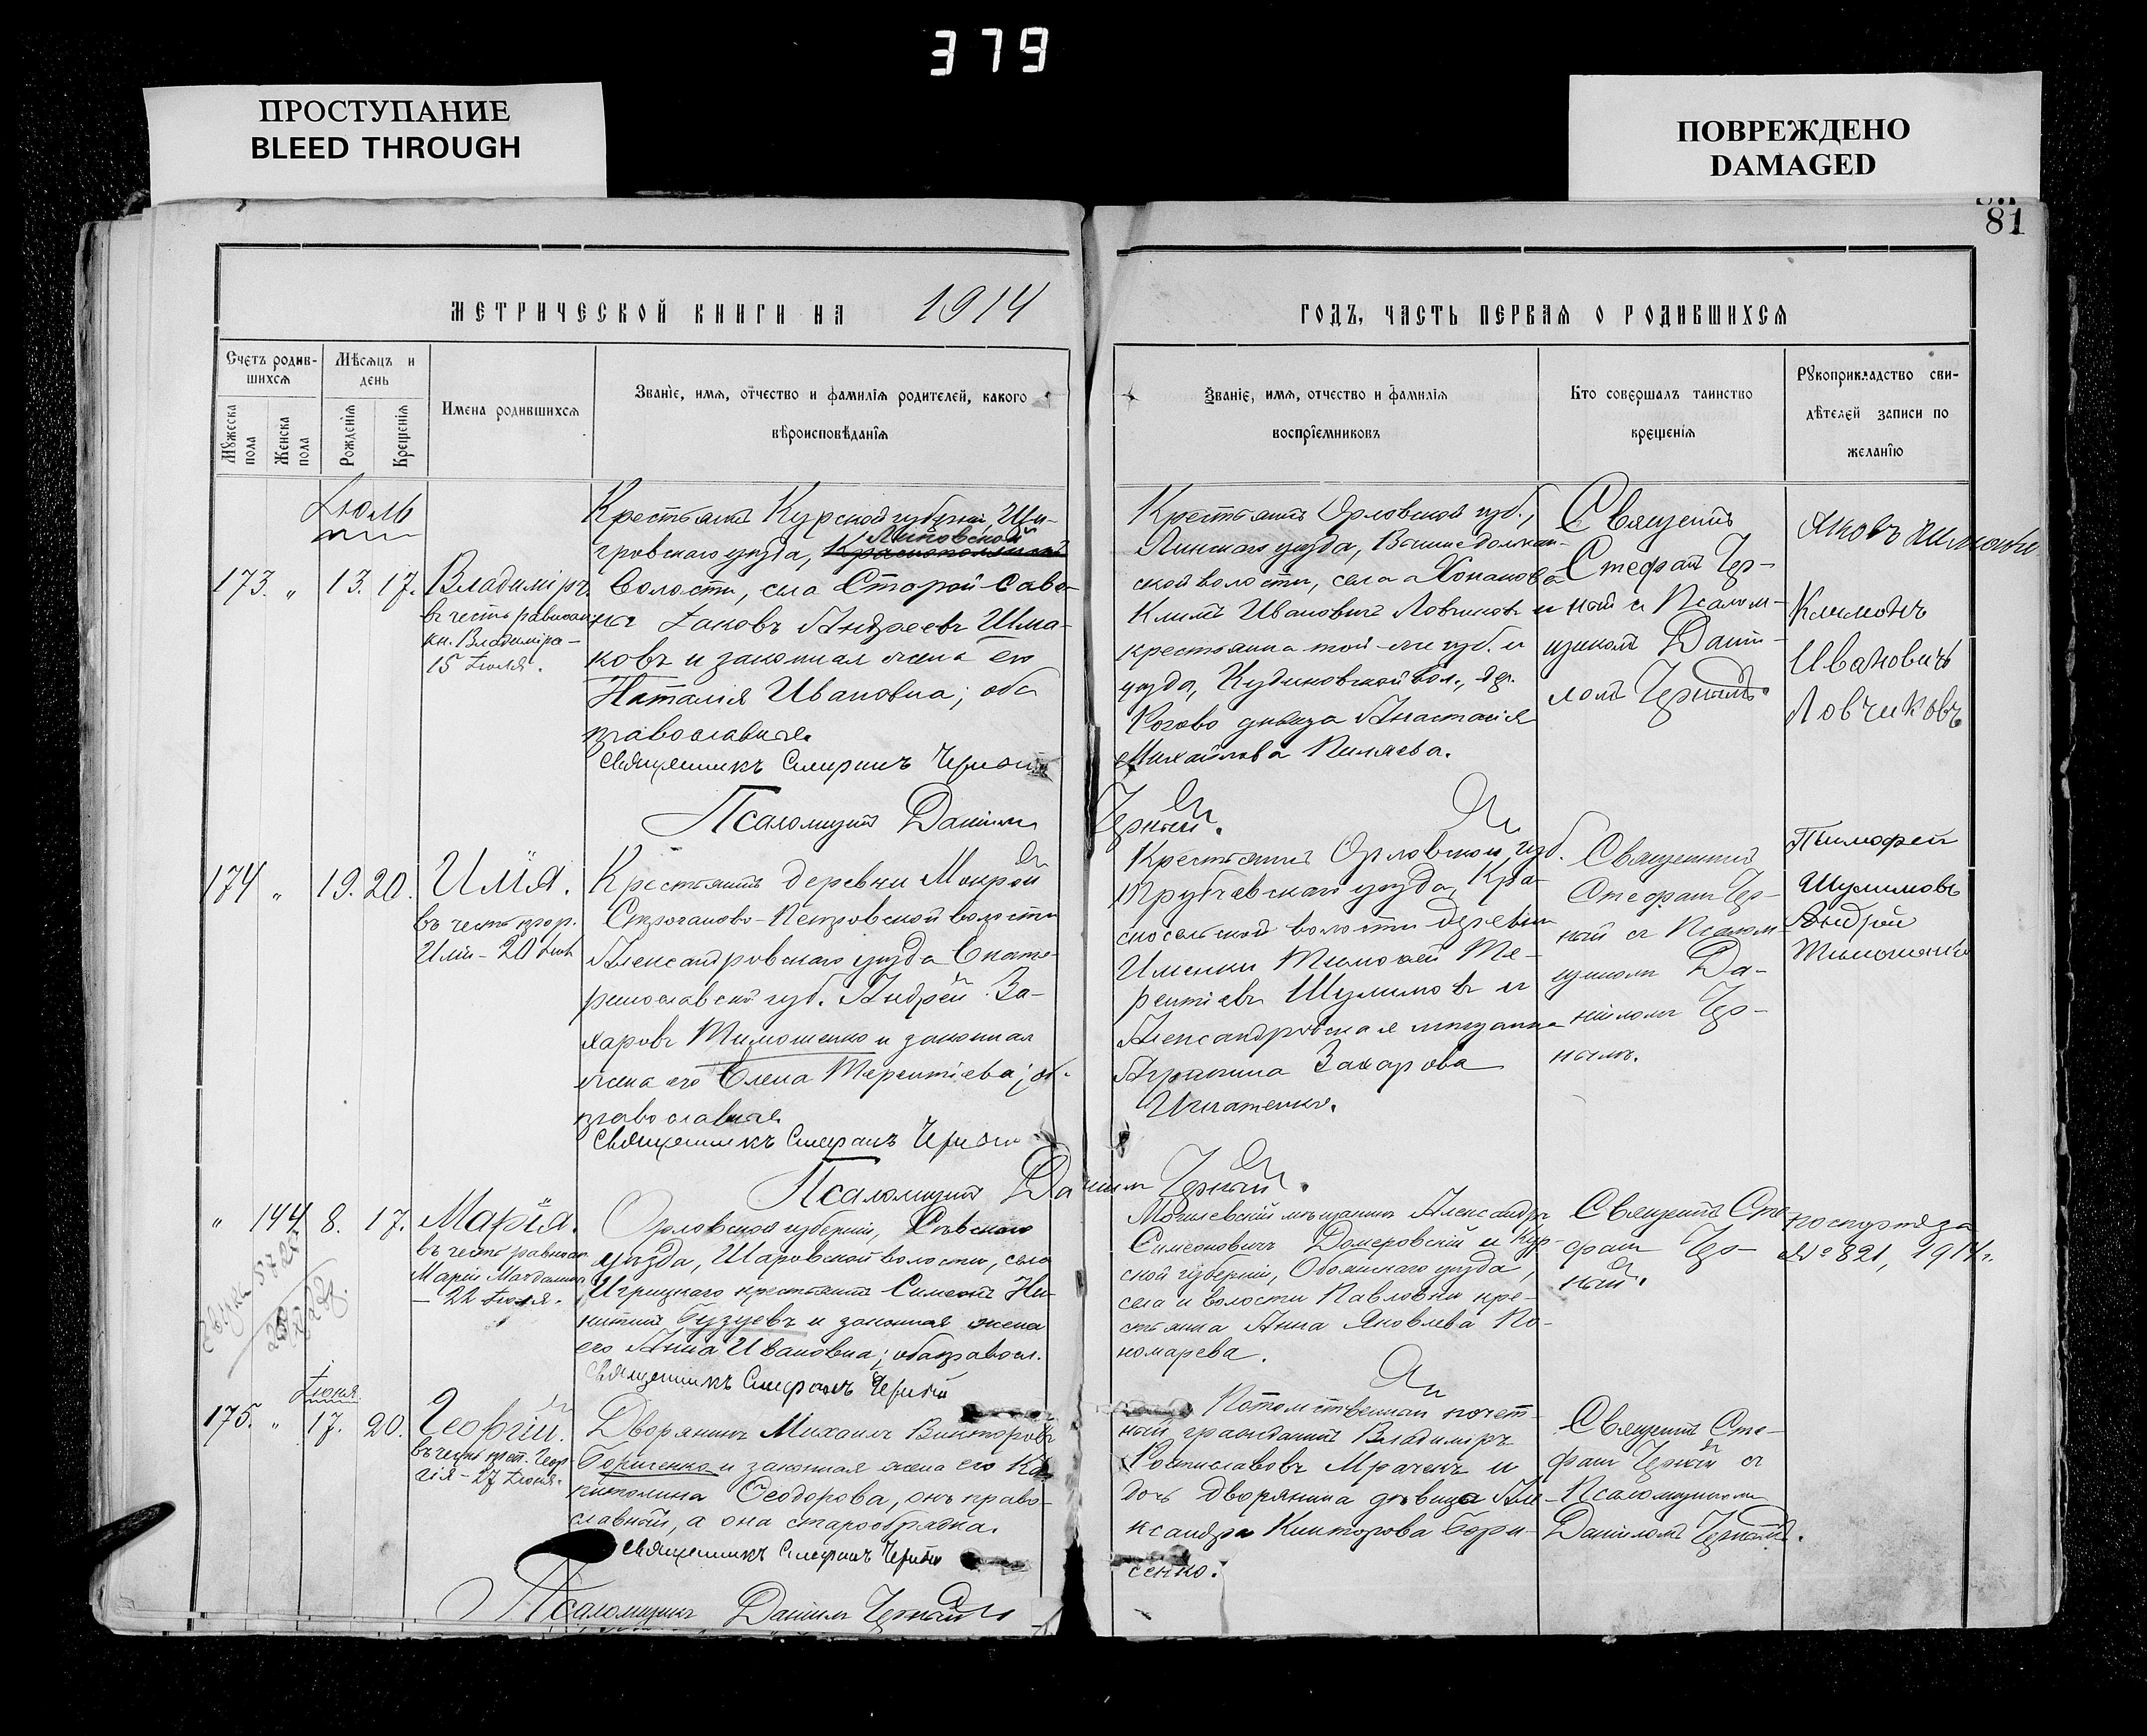 379
ПРОСТУПАНИЕ
BLEED THROUGH
ПОВРЕЖДЕНО
DAMAGED
81
МЕТРИЧЕСКОЙ КНИГИ НА 1914
ГОДЪ, ЧАСТЬ ПЕРВАЯ О РОДИВШИХСЯ
Счетъ родив-
шихся
Мужеска пола
Женска пола
Мѣсяцъ и
день
Рожденія
Крещенія
Имена родившихся
Званіе, имя, отчество и фамилія родителей, какого
вѣроисповѣданія
Званіе, имя, отчество и фамилія
воспріемниковъ
Кто совершалъ таинство
крещенія
Рукоприкладство сви-
дѣтелей записи по
желанію
Іюль
173. „ 13. 17. Владиміръ.
въ честь равноап.
кн. Владиміра –
15 Іюля.
Крестьянинъ Курской губерніи, Щи-
гровскаго уѣзда, Липовской
волости, села Старой Саво-
Іаковъ Андреевъ Шма-
ковъ и законная жена его
Наталія Ивановна; оба
православные.
Священникъ Стефанъ Черный
Псаломщикъ Даніилъ Черный.
Крестьянинъ Орловской губ.,
уѣзда,
ской волости, села
Климъ Ивановичъ Ловчиковъ и
крестьянка той-же губ. и
уѣзда, вол., дер.
Рогово дѣвица Анастасія
Михайлова Пиляева.
Священникъ
Стефанъ Чер-
ный съ Псалом-
щикомъ Дані-
ломъ Чернымъ.
Яковъ
Климонъ
Ивановичъ
Ловчиковъ
174 „ 19. 20. Илія.
въ честь прор.
Иліи – 20 Іюля
Крестьянинъ деревни Мокрой
Строганово-Петровской волости
Александровскаго уѣзда Екате-
ринославской губ. Андрей За-
харовъ Тимошенко и законная
жена его Елена Терентіева; об.
православные.
Священникъ Стефанъ Черный
Псаломщикъ Даніилъ Черный.
Крестьянинъ Орловской губ.
Трубчевскаго уѣзда, Кра-
сносельской волости деревни
Именки Тимофей Те-
рентіевъ Шулимовъ и
Александровская мѣщанка
Захарова
Игнатенко.
Священникъ
Стефанъ Чер-
ный съ Псалом-
щикомъ Да-
ніиломъ Чер-
нымъ.
Тимофей
Шулимовъ
Андрей
Тимошенко
„ 144. 8. 17. Марія.
въ честь равноап.
Маріи Магдалины
– 22 Іюля.
Орловской губерніи, Сѣвскаго
уѣзда, Шаровской волости, села
Игрицкаго крестьянинъ Симеонъ Ни-
китинъ Бузуевъ и законная жена
его Анна Ивановна; оба правосл.
Священникъ Стефанъ Черный
Могилевскій мѣщанинъ Александръ
Симеоновичъ Домеровскій и Кур-
ской губерніи, Обоянскаго уѣзда,
села и волости Павловки кре-
стьянка Анна Яковлева По-
номарева.
Священникъ Сте-
фанъ Чер-
ный.
№ 821, 1914 г.
Іюня
175. „ 17. 20. Георгій.
въ честь Геор-
гія – 27 Іюня.
Дворянинъ Михаилъ Викторовъ
Борисенко и законная жена его Ка-
питолина Ѳеодорова, онъ право-
славный, а она старообрядка.
Священникъ Стефанъ Черный
Псаломщикъ Даніилъ Черный
Потомственный почет-
ный гражданинъ Владиміръ
Ростиславовъ Мрачекъ и
дочь дворянина дѣвица Але-
ксандра Викторова Бори-
сенко.
Священникъ Сте-
фанъ Черный съ
Псаломщикомъ
Даніиломъ Чернымъ.